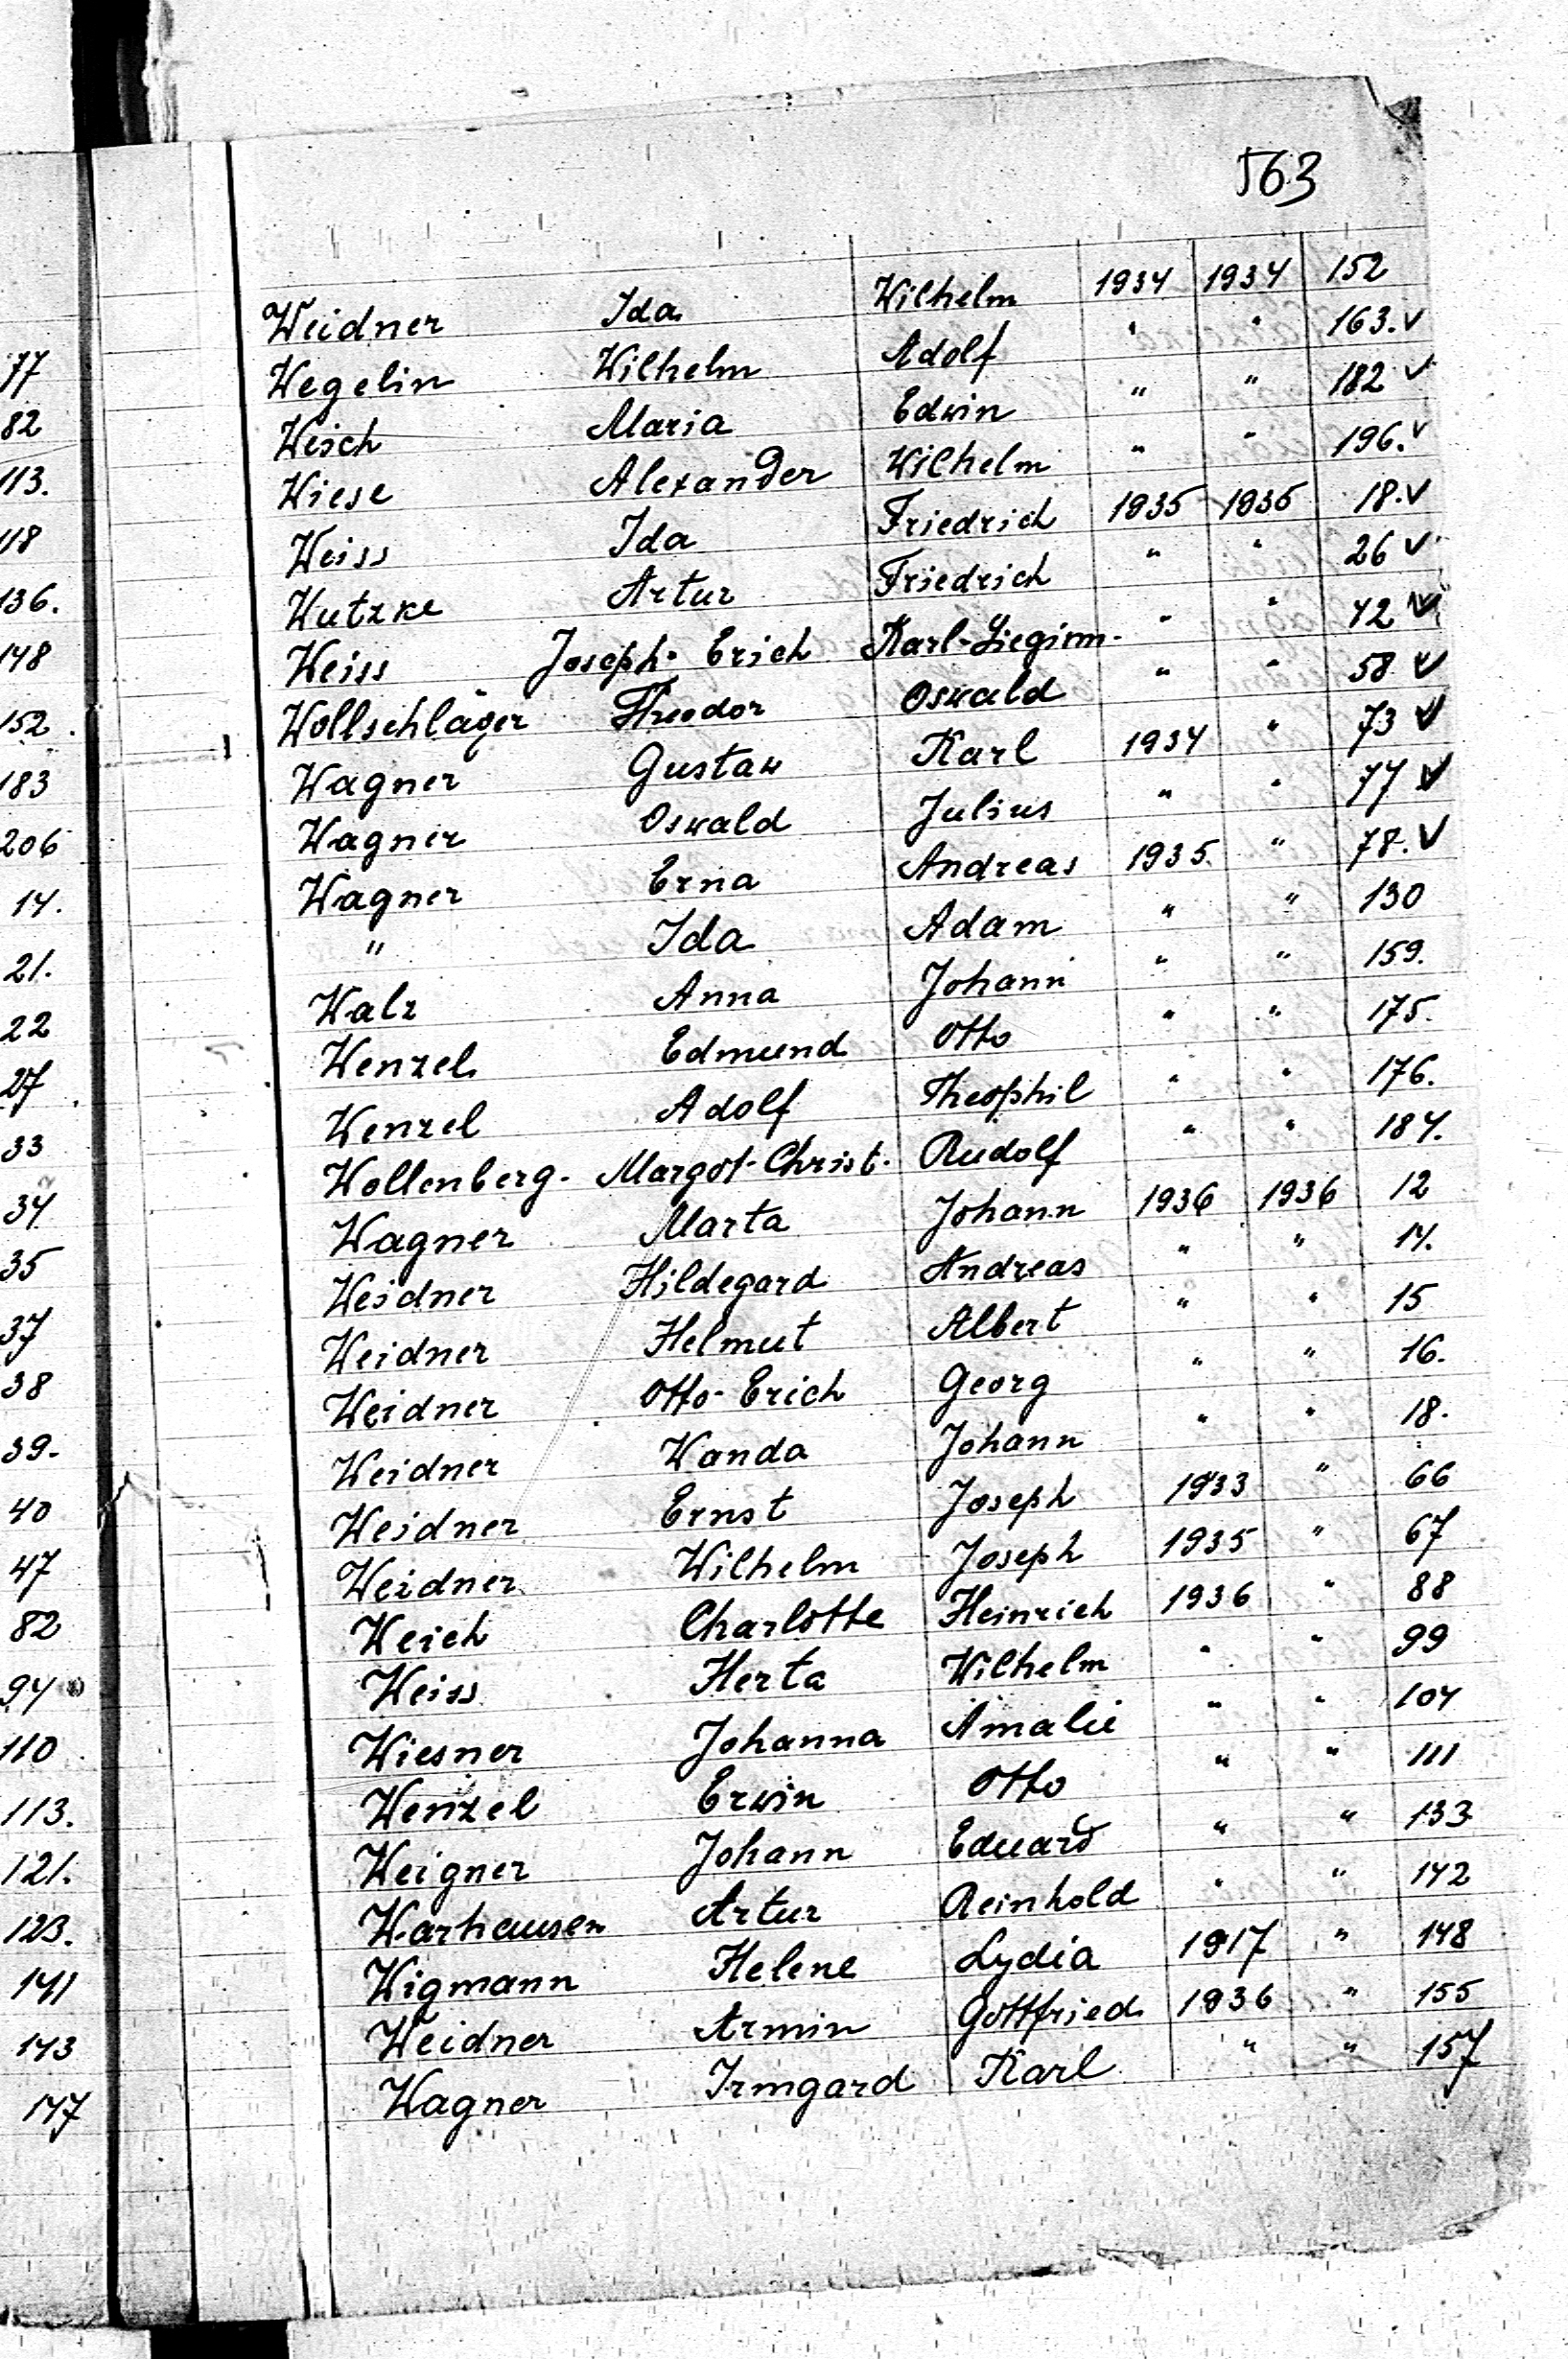 563
Weidner Ida Wilhelm 1934 1934 152
Wegelin Wilhelm Adolf " " 163. v
Weich Maria Edwin " " 182 v
Wiese Alexander Wilhelm " " 196. v
Weiss Ida Friedrich 1935 1935 18. v
Wutzke Artur Friedrich " " 26 v
Weiss Joseph-Erich Karl- " " 42 v
Wollschläger Theodor Oswald " " 58 v
Wagner Gustaw Karl 1934 " 73 v
Wagner Oswald Julius " " 77 v
Wagner Erna Andreas 1935 " 78. v
" Ida Adam " " 130
Walz Anna Johann " " 159.
Wenzel Edmund Otto " " 175.
Wenzel Adolf Theophil " " 176.
Wollenberg. Margot-Christ. Rudolf " " 184.
Wagner Marta Johann 1936 1936 12
Weidner Hildegard Andreas " " 14.
Weidner Helmut Albert " " 15
Weidner Otto-Erich Georg " " 16.
Weidner Wanda Johann " " 18.
Weidner Ernst Joseph 1933 " 66
Weidner Wilhelm Joseph 1935 " 67
Weich Charlotte Heinrich 1936 " 88
Weiss Herta Wilhelm " " 99
Wiesner Johanna Amalie " " 104
Wenzel Erwin Otto " " 111
Weigner Johann Eduard " " 133
Warhausen Artur Reinhold " " 142
Wigmann Helene Lydia 1917 " 148
Weidner Armin Gottfried 1936 " 155
Wagner Irmgard Karl " " 157
77
82
113.
118
136.
148
152.
183
206
14.
21.
22
27
33
34
35
37
38
39.
40
47
82
94
110
113.
121.
123.
141
143
147